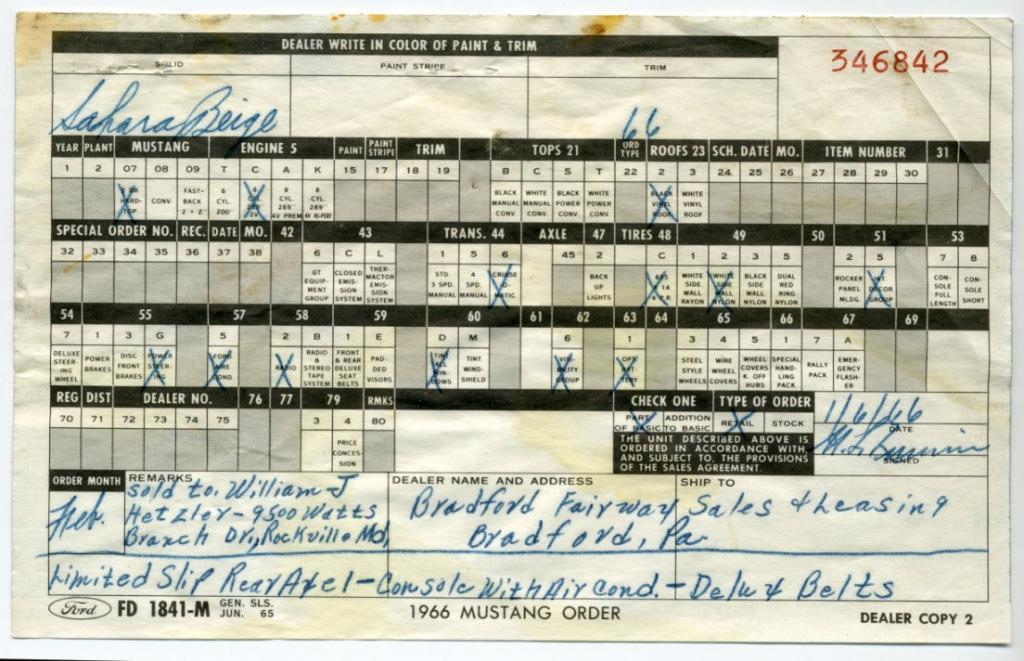 DEALER WRITE IN COLOR OF PAINT & TRIM
346842
SOLID PAINT STRIPE TRIM
Sahara Beige
66
YEAR PLANT MUSTANG ENGINE 5 PAINT PAINT STRIPE TRIM TOPS 21 ORD TYPE ROOFS 23 SCH. DATE MO. ITEM NUMBER 31
1 2 07 08 09 T C A K 15 17 18 19 B C S T 22 2 3 24 25 26 27 28 29 30
HARD-TOP CONV. FAST-BACK 2 + 2 6 CYL. 200" 8 CYL. 289" 2V 8 CYL. 289" 4V PREM 8 CYL. 289" 4V HI-PERF BLACK MANUAL CONV. WHITE MANUAL CONV. BLACK POWER CONV. WHITE POWER CONV. BLACK VINYL ROOF WHITE VINYL ROOF
SPECIAL ORDER NO. REC. DATE MO. 42 43 TRANS. 44 AXLE 47 TIRES 48 49 50 51 53
32 33 34 35 36 37 38 6 C L 1 5 6 45 2 C 1 2 3 5 2 5 7 8
GT EQUIP-MENT GROUP CLOSED EMIS-SION SYSTEM THER-MACTOR EMIS-SION SYSTEM STD. 3 SPD. MANUAL 4 SPD. MANUAL CRUISE-O-MATIC BACK UP LIGHTS 695 14 4 P.R. WHITE SIDE WALL RAYON WHITE SIDE WALL NYLON BLACK SIDE WALL NYLON DUAL RED RING NYLON ROCKER PANEL MLDG. INT. DECOR GROUP CON-SOLE FULL LENGTH CON-SOLE SHORT
54 55 57 58 59 60 61 62 63 64 65 66 67 69
7 1 3 G 5 2 B 1 E D M 6 1 3 4 5 1 7 A
DELUXE STEER-ING WHEEL POWER BRAKES DISC FRONT BRAKES POWER STEER-ING FORD AIRE COND RADIO RADIO & STEREO TAPE SYSTEM FRONT & REAR DELUXE SEAT BELTS PAD-DED VISORS TINT ALL WIN-DOWS TINT WIND-SHIELD VISI-BILITY GROUP OPT BAT-TERY STEEL STYLE WHEELS WIRE WHEEL COVERS WHEEL COVERS K. OFF HUBS SPECIAL HAND-LING PACK. RALLY PACK EMER-GENCY FLASH-ER
REG DIST DEALER NO. 76 77 79 RMKS CHECK ONE TYPE OF ORDER
70 71 72 73 74 75 3 4 80 PART OF BASIC ADDITION TO BASIC RETAIL STOCK 1/6/66 DATE
PRICE CONCES-SION
THE UNIT DESCRIBED ABOVE IS
ORDERED IN ACCORDANCE WITH,
AND SUBJECT TO, THE PROVISIONS
OF THE SALES AGREEMENT.
SIGNED
ORDER MONTH REMARKS DEALER NAME AND ADDRESS SHIP TO
Feb.
sold to. William J
Hetzler - 9500 Watts
Branch Dr., Rockville Md,
Bradford Fairway Sales & Leasing
Bradford, Pa
Limited Slip Rear Axel - Console With Air Cond. - Delux Belts
Ford FD 1841-M GEN. SLS. JUN. 65 1966 MUSTANG ORDER DEALER COPY 2